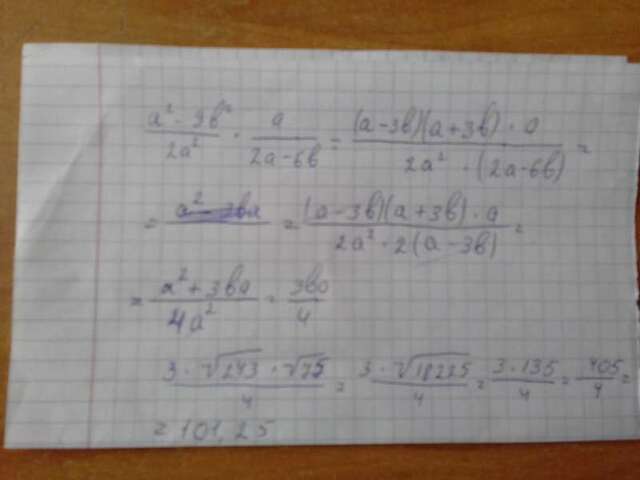 (a² - 9b²)/(2a²) · a/(2a-6b) = ((a-3b)(a+3b) · a)/(2a² · (2a-6b)) =
= = ((a-3b)(a+3b) · a)/(2a² · 2(a-3b)) =
= (a²+3ba)/(4a²) = 3ba/4
(3 · √243 · √75)/4 = (3 · √18225)/4 = (3 · 135)/4 = 405/4 =
= 101,25